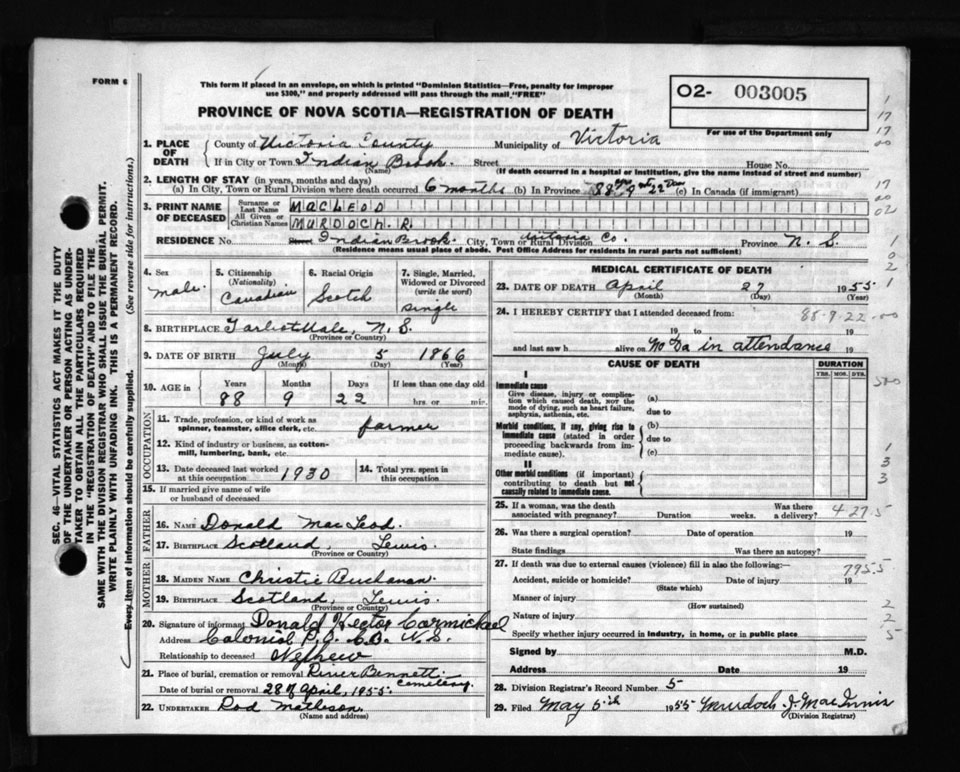 FORM 6
This form if placed in an envelope, on which is printed "Dominion Statistics—Free, penalty for improper
use $300," and properly addressed will pass through the mail "FREE"
PROVINCE OF NOVA SCOTIA—REGISTRATION OF DEATH
O2- 003005
For use of the Department only
1. PLACE OF DEATH County of Victoria County Municipality of Victoria
If in City or Town Indian Brook. Street House No.
(Name) (If death occurred in a hospital or institution, give the name instead of street and number)
2. LENGTH OF STAY (in years, months and days)
(a) In City, Town or Rural Division where death occurred 6 months (b) In Province 88 yrs 9 22 Days (c) In Canada (if immigrant)
3. PRINT NAME OF DECEASED Surname or Last Name MACLEOD
All Given or Christian Names MURDOCH. R.
RESIDENCE No. Street Indian Brook. City, Town or Rural Division Victoria Co. Province N. S.
(Residence means usual place of abode. Post Office Address for residents in rural parts not sufficient)
4. Sex male
5. Citizenship (Nationality) Canadian
6. Racial Origin Scotch
7. Single, Married, Widowed or Divorced (write the word) single
8. BIRTHPLACE Tarbotvale, N. S.
(Province or Country)
9. DATE OF BIRTH July 5 1866
(Month) (Day) (Year)
10. AGE in Years Months Days If less than one day old
88 9 22 hrs. or min.
OCCUPATION
11. Trade, profession, or kind of work as spinner, teamster, office clerk, etc. farmer
12. Kind of industry or business, as cotton-mill, lumbering, bank, etc.
13. Date deceased last worked at this occupation 1930
14. Total yrs. spent in this occupation
15. If married give name of wife or husband of deceased
FATHER
16. NAME Donald MacLeod.
17. BIRTHPLACE Scotland, Lewis.
(Province or Country)
MOTHER
18. MAIDEN NAME Christie Buchanan.
19. BIRTHPLACE Scotland, Lewis.
(Province or Country)
20. Signature of informant Donald Hector Carmichael
Address Colonial P.O. C.B. N.S.
Relationship to deceased Nephew
21. Place of burial, cremation or removal River Bennett Cemetery.
Date of burial or removal 28th April, 1955.
22. UNDERTAKER Rod Matheson.
(Name and address)
MEDICAL CERTIFICATE OF DEATH
23. DATE OF DEATH April 27 1955
(Month) (Day) (Year)
24. I HEREBY CERTIFY that I attended deceased from: 88-9-22-00
19 to 19
and last saw h alive on No Da in attendance 19
CAUSE OF DEATH DURATION
YRS. MOS. DYS.
I
Immediate cause
Give disease, injury or complication which caused death, not the mode of dying, such as heart failure, asphyxia, asthenia, etc.
(a)
due to
Morbid conditions, if any, giving rise to immediate cause (stated in order proceeding backwards from immediate cause).
(b)
due to
(c)
II
Other morbid conditions (if important) contributing to death but not causally related to immediate cause.
25. If a woman, was the death associated with pregnancy? Duration weeks. Was there a delivery? 4 27 5
26. Was there a surgical operation? Date of operation 19
State findings Was there an autopsy?
27. If death was due to external causes (violence) fill in also the following:— 795-5
Accident, suicide or homicide? Date of injury 19
(State which)
Manner of injury
(How sustained)
Nature of injury
Specify whether injury occurred in industry, in home, or in public place
Signed by M.D.
Address Date 19
28. Division Registrar's Record Number 5
29. Filed May 5th 1955 Murdoch J. MacInnis
(Division Registrar)
SEC. 46—VITAL STATISTICS ACT MAKES IT THE DUTY
OF THE UNDERTAKER OR PERSON ACTING AS UNDER-
TAKER TO OBTAIN ALL THE PARTICULARS REQUIRED
IN THE "REGISTRATION OF DEATH" AND TO FILE THE
SAME WITH THE DIVISION REGISTRAR WHO SHALL ISSUE THE BURIAL PERMIT.
WRITE PLAINLY WITH UNFADING INK. THIS IS A PERMANENT RECORD.
Every item of information should be carefully supplied. (See reverse side for instructions.)
1
17
17
00
17
00
02
1
0
2
1
500
1
3
3
2
2
5